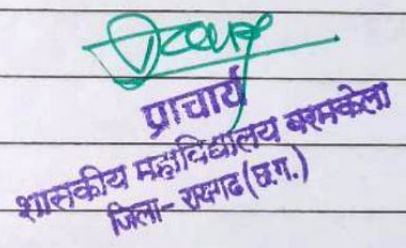 प्राचार्य
शासकीय महाविद्यालय बरमकेला
जिला- रायगढ (छ.ग.)